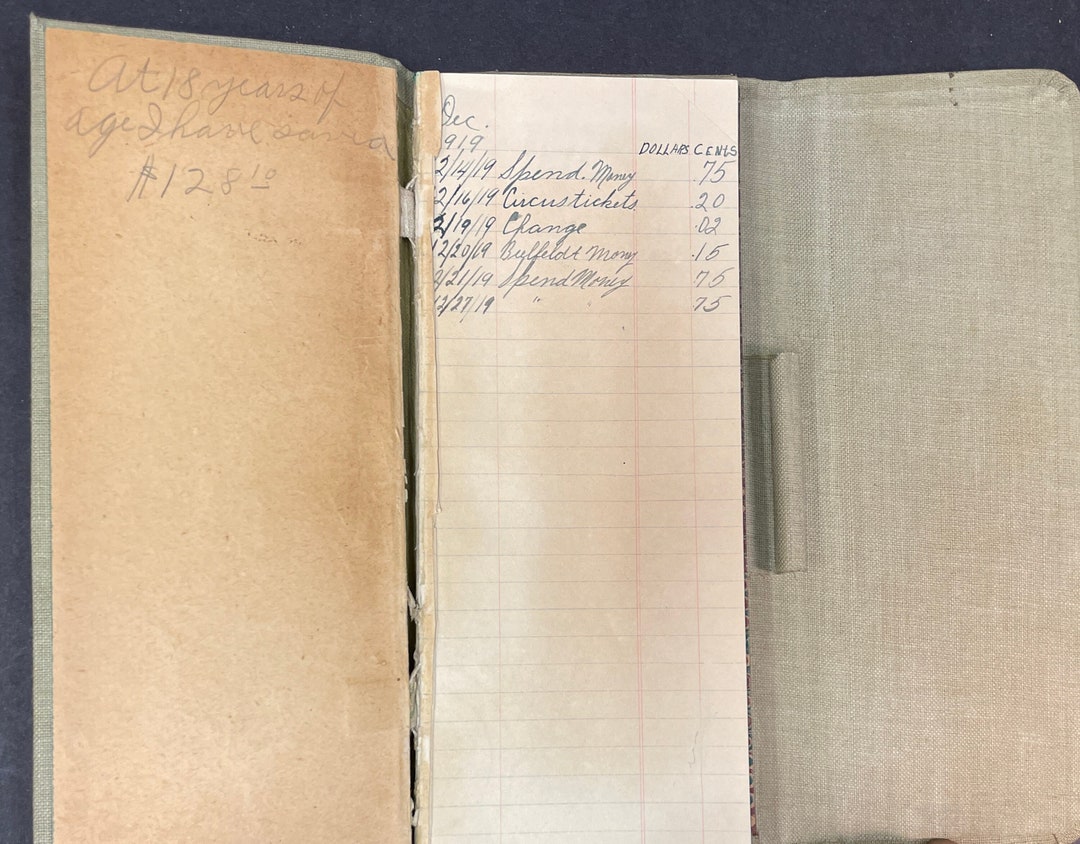 At 18 years of
age I have saved
$128 10
Dec.
1919
DOLLARS CENTS
12/14/19 Spend. Money .75
12/16/19 Circus tickets .20
12/19/19 Change .02
12/20/19 Money .15
12/21/19 Spend Money 75
12/27/19 " " .75